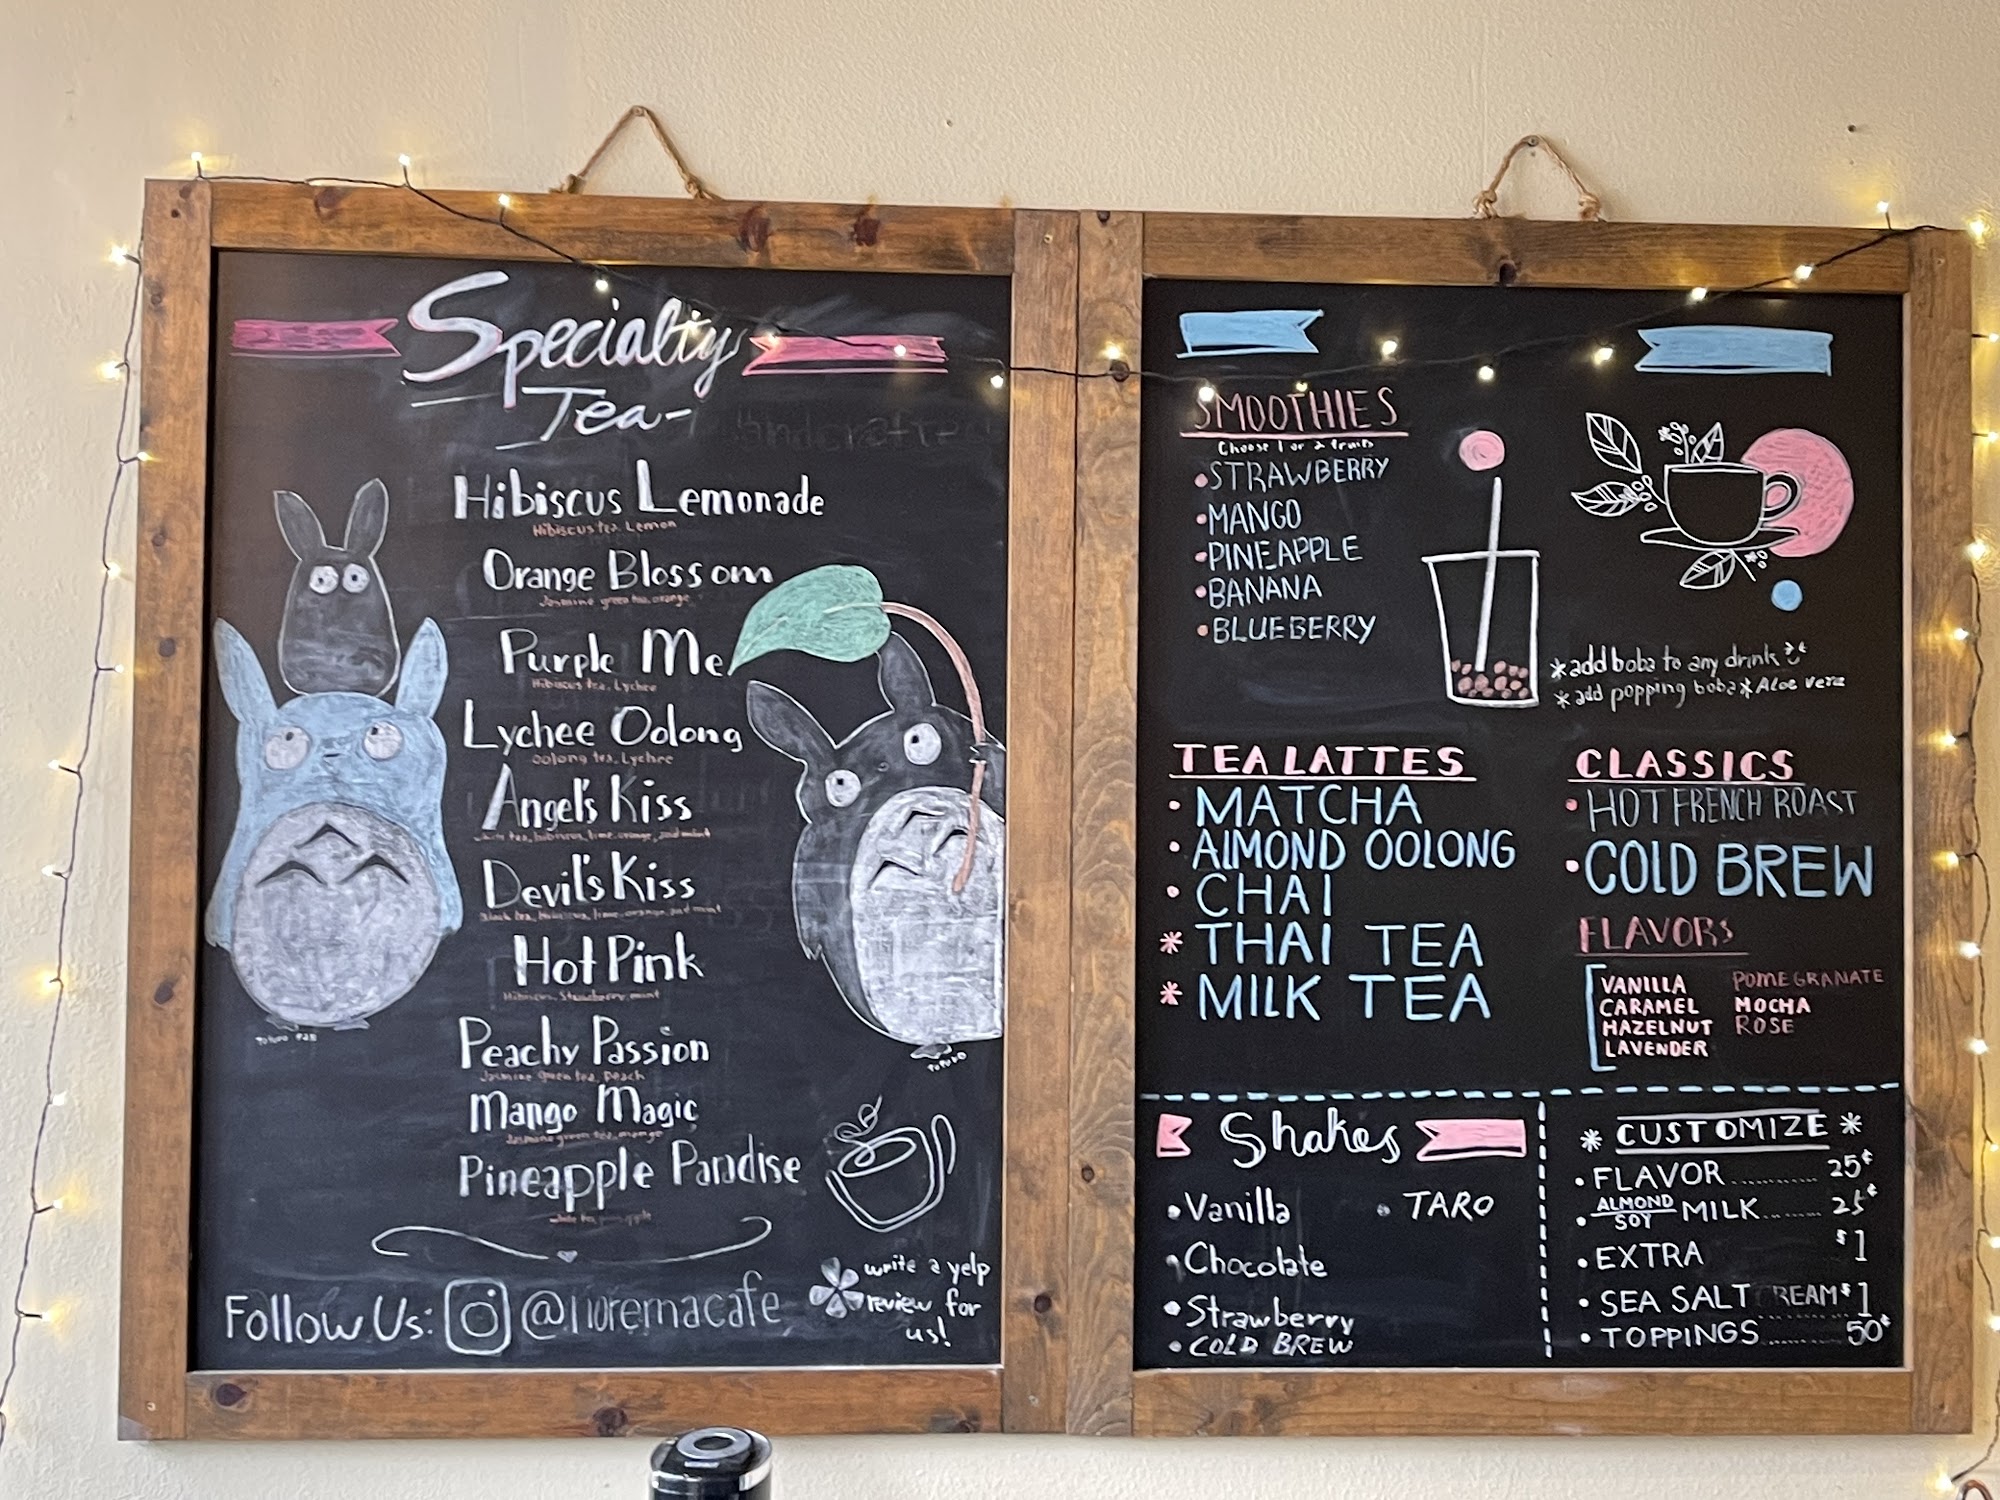 Specialty
Tea-
Hibiscus Lemonade
Hibiscus tea, Lemon
Orange Blossom
Jasmine green tea, orange
Purple Me
Hibiscus tea, Lychee
Lychee Oolong
oolong tea, Lychee
Angel's Kiss
white tea, hibiscus, lime, orange, and mint
Devil's Kiss
Black tea, Hibiscus, lime, orange, and mint
Hot Pink
Hibiscus, Strawberry, mint
Peachy Passion
Jasmine green tea, peach
Mango Magic
Jasmine green tea, mango
Pineapple Paradise
white tea, pineapple
TOTORO
Follow Us: @noremacafe
write a yelp
review for
us!
SMOOTHIES
Choose 1 or 2 fruits
•STRAWBERRY
•MANGO
•PINEAPPLE
•BANANA
•BLUEBERRY
*add boba to any drink
*add popping boba*Aloe vera
TEA LATTES
•MATCHA
•ALMOND OOLONG
•CHAI
*THAI TEA
*MILK TEA
CLASSICS
•HOT FRENCH ROAST
•COLD BREW
FLAVORS
VANILLA
CARAMEL
HAZELNUT
LAVENDER
POMEGRANATE
MOCHA
ROSE
Shakes
•Vanilla
•Chocolate
•Strawberry
•COLD BREW
•TARO
* CUSTOMIZE *
•FLAVOR............25¢
•ALMOND SOY MILK........25¢
•EXTRA $1
•SEA SALT CREAM $1
•TOPPINGS.......50¢